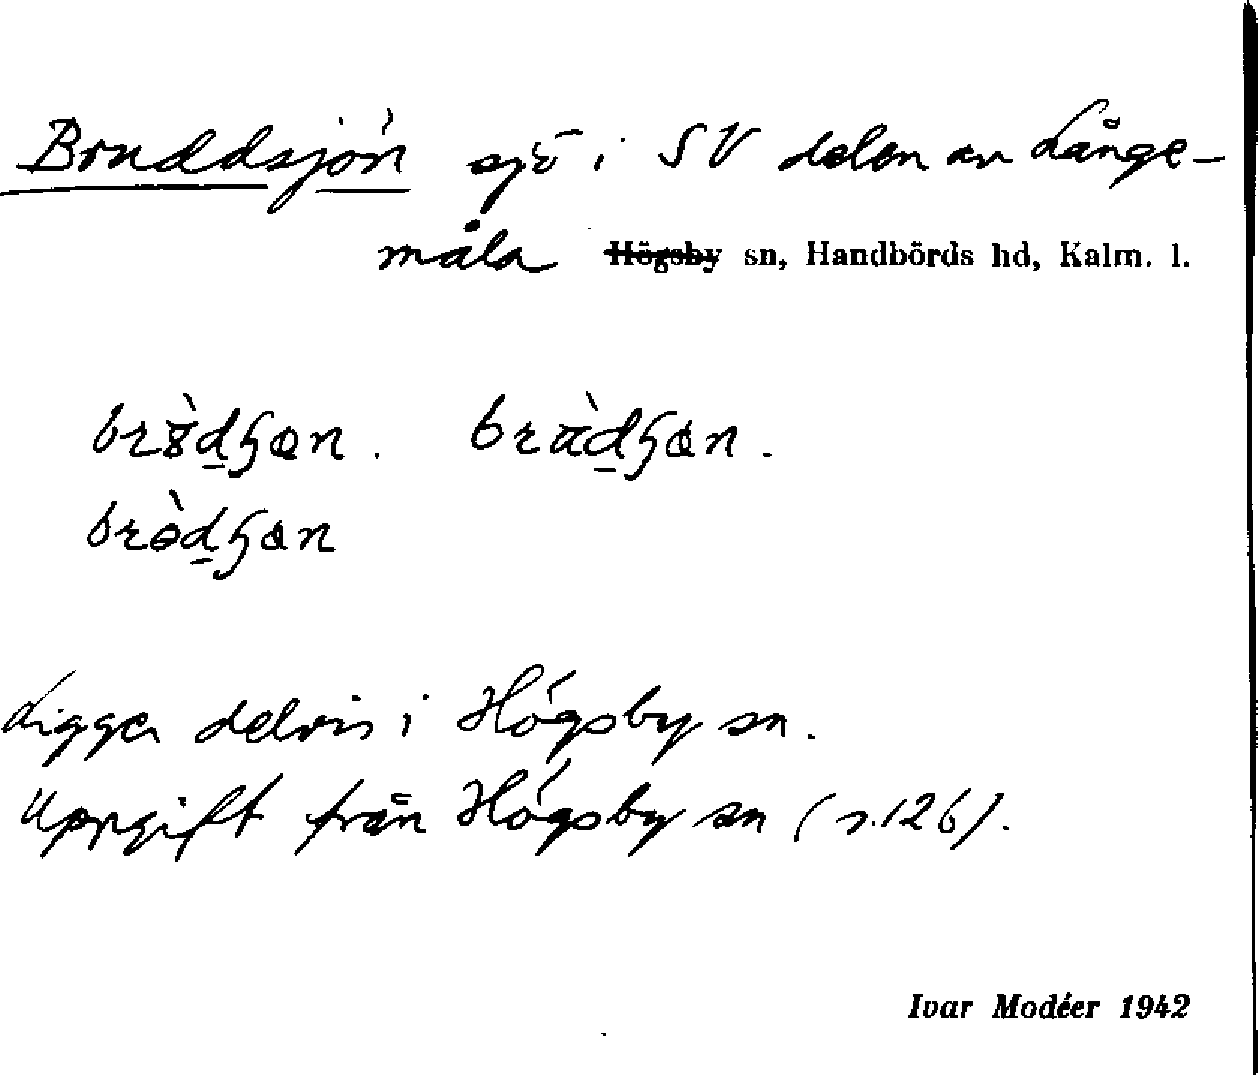 Bruddsjön sjö i SV delen av Långe-
måla Högsby sn, Handbörds hd, Kalm. l.
Ligger delvis i Högsby sn.
Uppgift från Högsby sn (s.126).
Ivar Modéer 1942